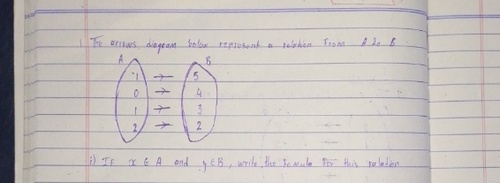 The arrows diagram below represent a relation from A to B
A B
1 → 5
0 → 4
1 → 3
2 → 2
i) If x ∈ A and y ∈ B, write the formula for this relation